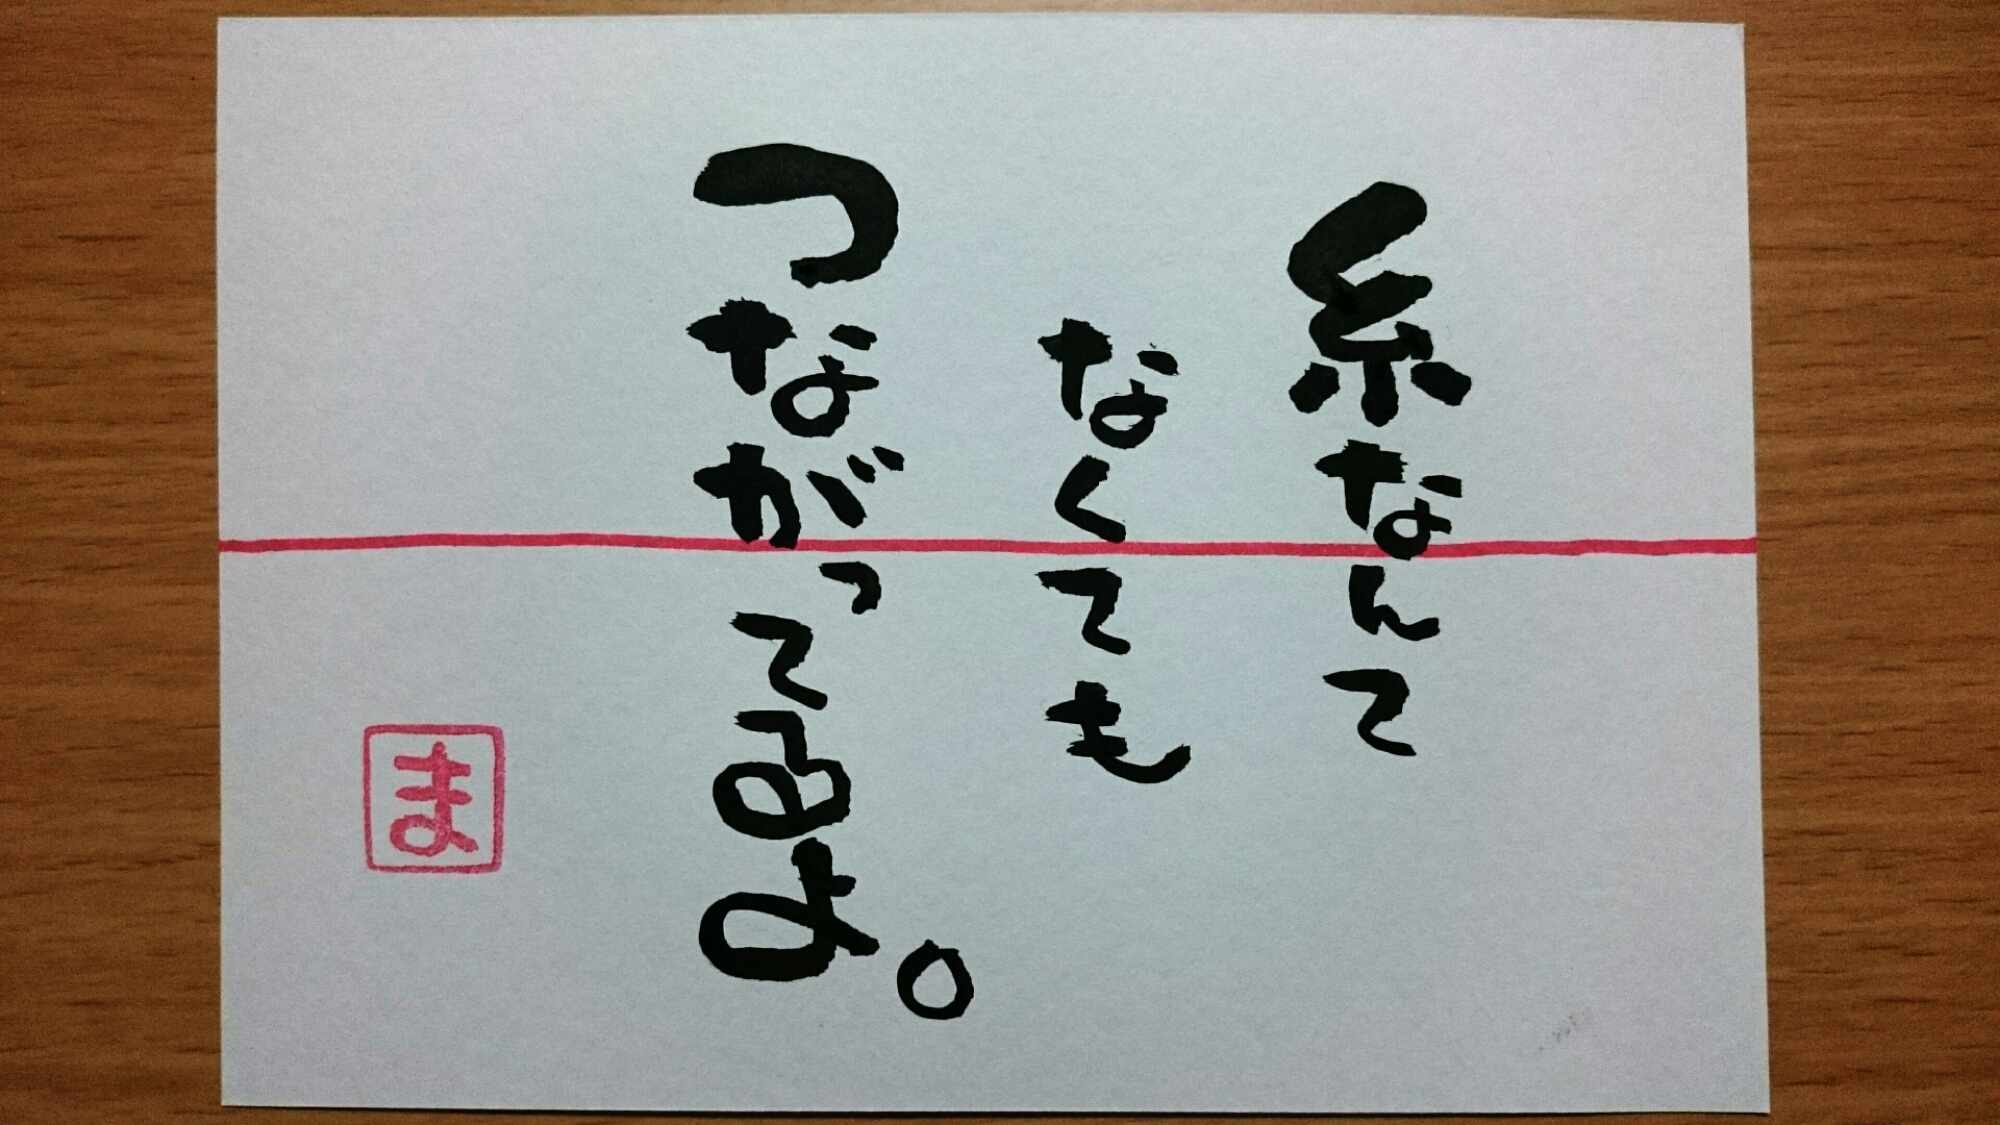 糸なんて
なくても
つながってるよ。
ま